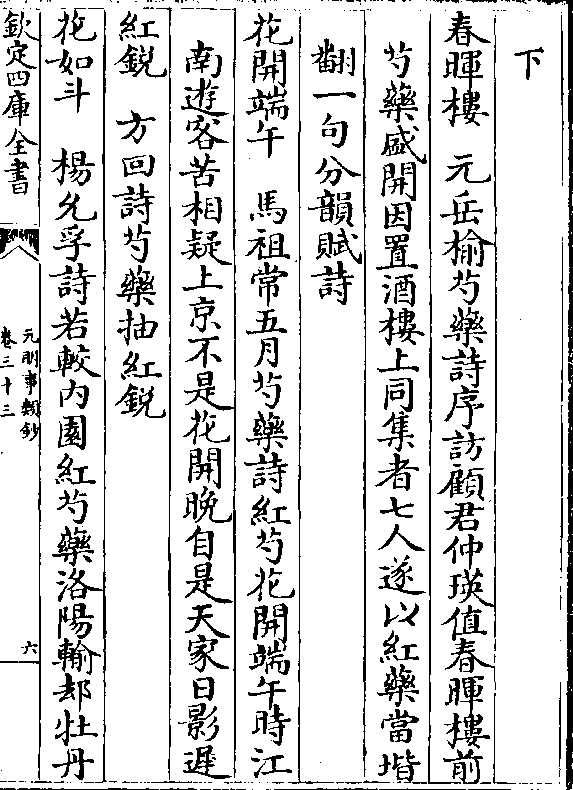 下
春暉樓　元岳榆芍藥詩序訪顧君仲瑛值春暉樓前
芍藥盛開因置酒樓上同集者七人遂以紅藥當堦
翻一句分韻賦詩
花開端午　馬祖常五月芍藥詩紅芍花開端午時江
南遊客苦相疑上京不是花開晚自是天家日影遲
紅銳　方回詩芍藥抽紅銳
花如斗　楊允孚詩若較內園紅芍藥洛陽輸却牡丹
欽定四庫全書
元明事類鈔
卷三十三
六